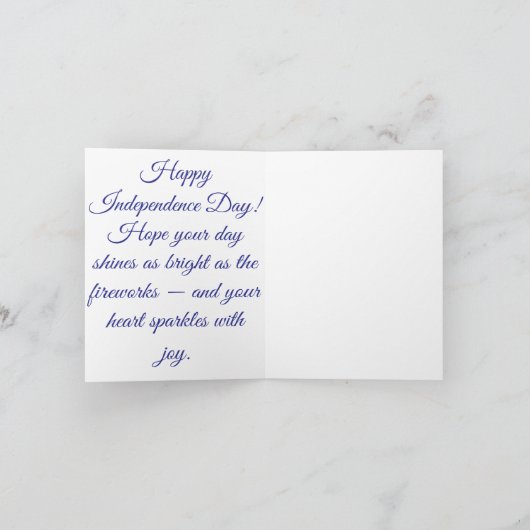 Happy
Independence Day!
Hope your day
shines as bright as the
fireworks — and your
heart sparkles with
joy.